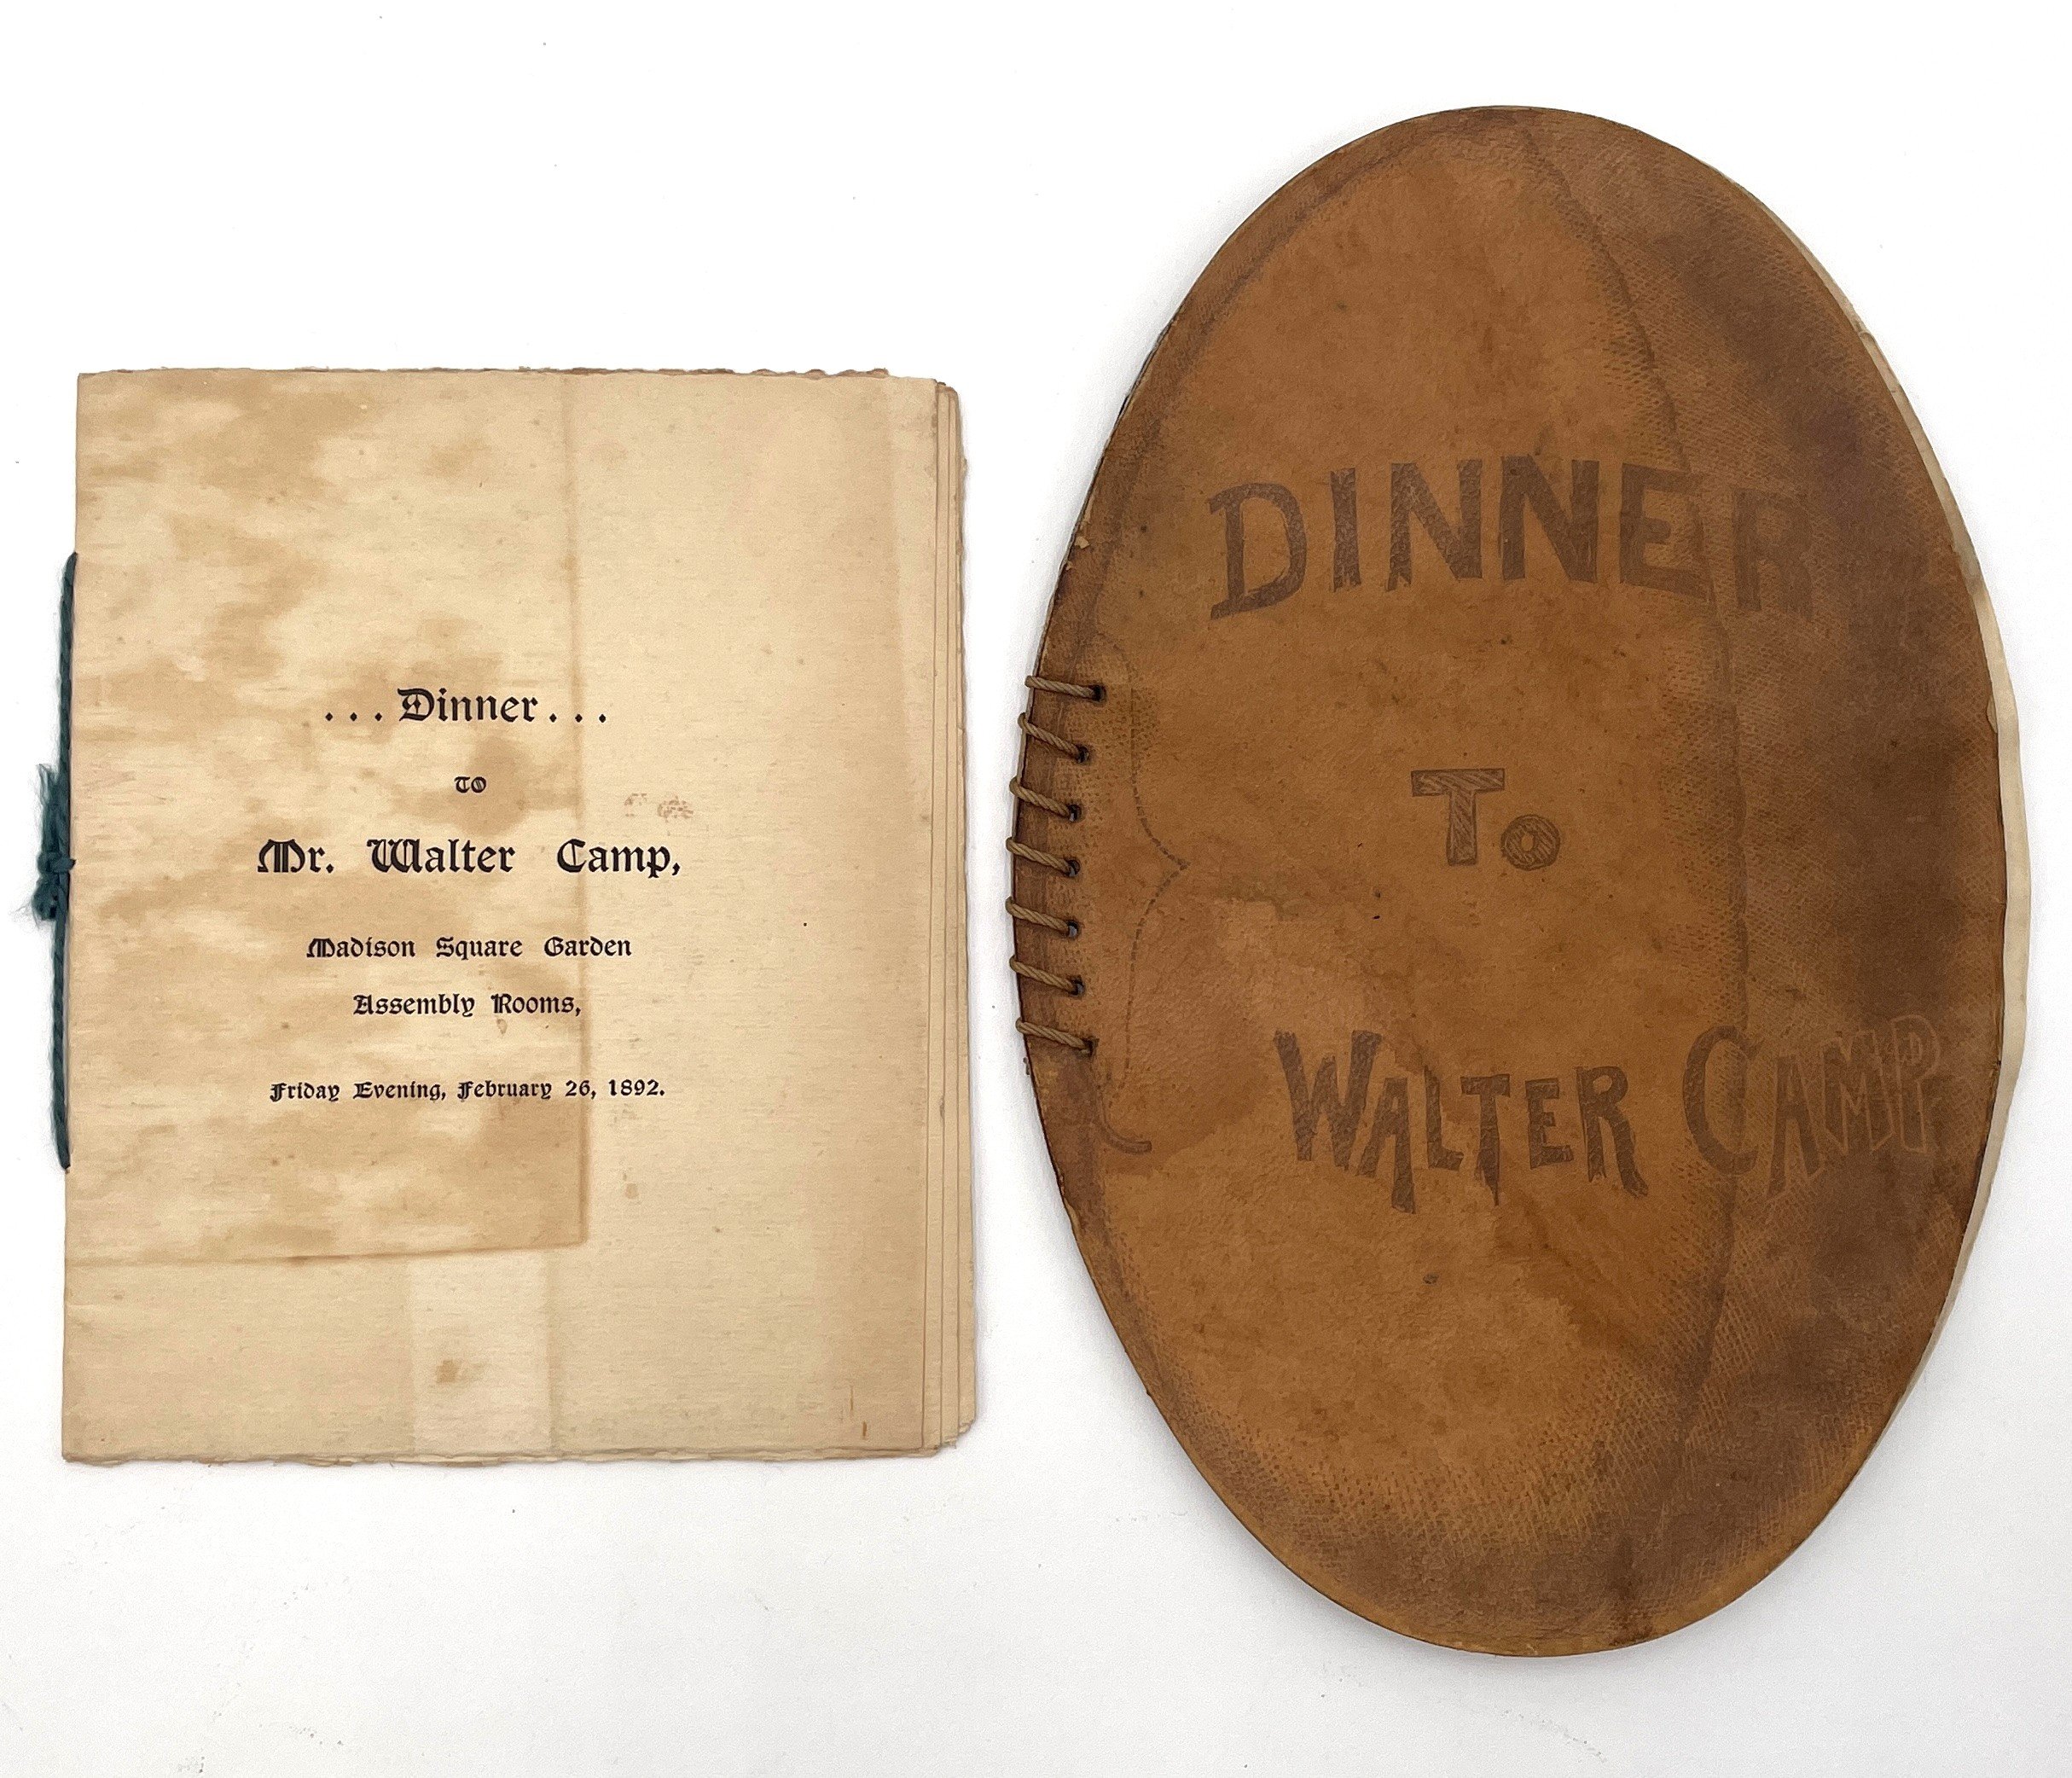 . . . Dinner . . .
TO
Mr. Walter Camp,
Madison Square Garden
Assembly Rooms,
Friday Evening, February 26, 1892.
DINNER
TO
WALTER CAMP